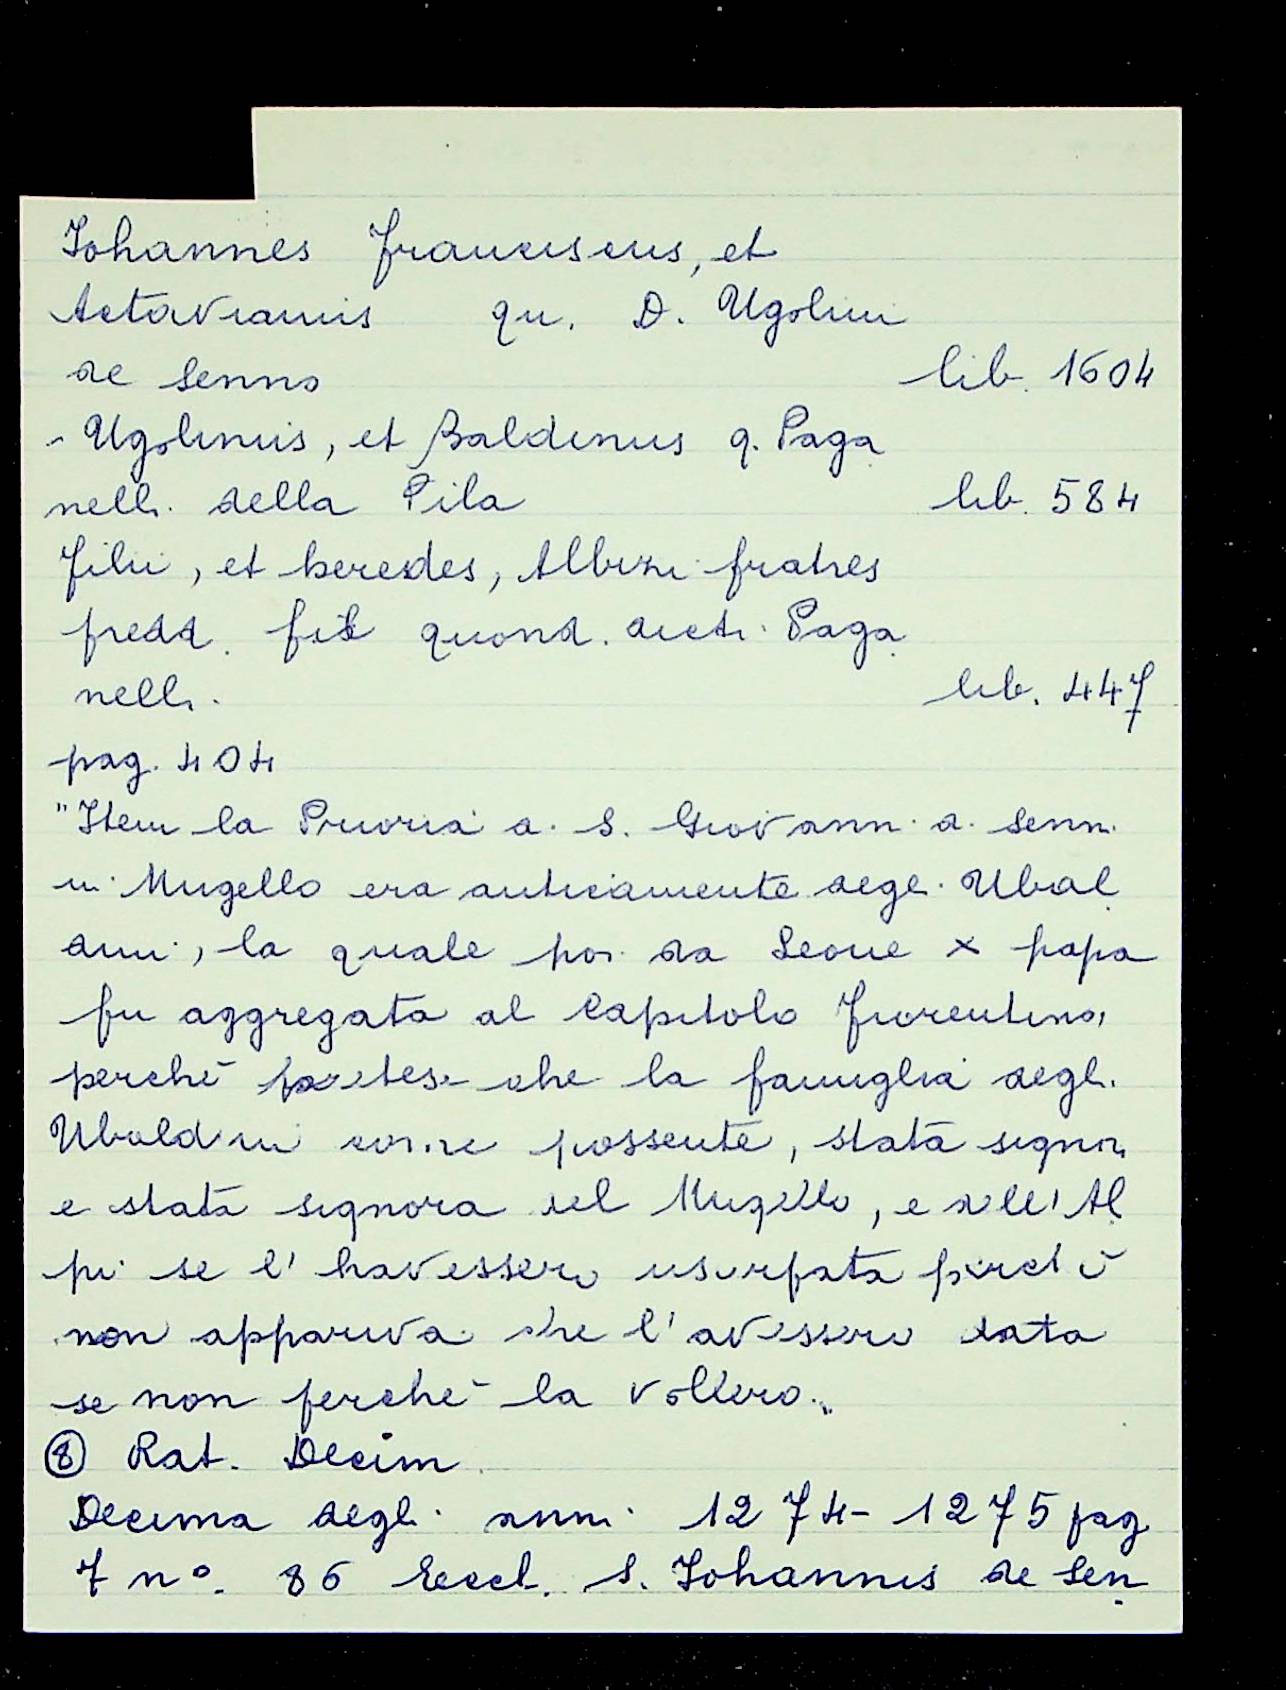 Iohannes Franciscus, et
Actavianus qu. D. Ugolini
de Senno lib. 1604
- Ugolinus, et Baldinus q. Paga
nelli della Pila lib. 584
Filii, et heredes, Albizi fratres
fredd. fil quond. dicti Paga
nelli. lib. 447
pag. 404
"Item la Prioria di S. Giovanni di Senni
in Mugello era anticamente degli Ubal
dini, la quale poi da Leone X papa
fu aggregata al Capitolo Fiorentino,
perché pretese che la famiglia degli
Ubaldini come possente, stata signor
e stata signora del Mugello, e dell'Al
pi se l'havessero usurpata perché
non appariva che l'avessero data
se non perché la vollero."
⑧ Rat. Decim.
Decima degli anni 1274-1275 pag
7 n°. 86 Eccl. S. Iohannis de Sen